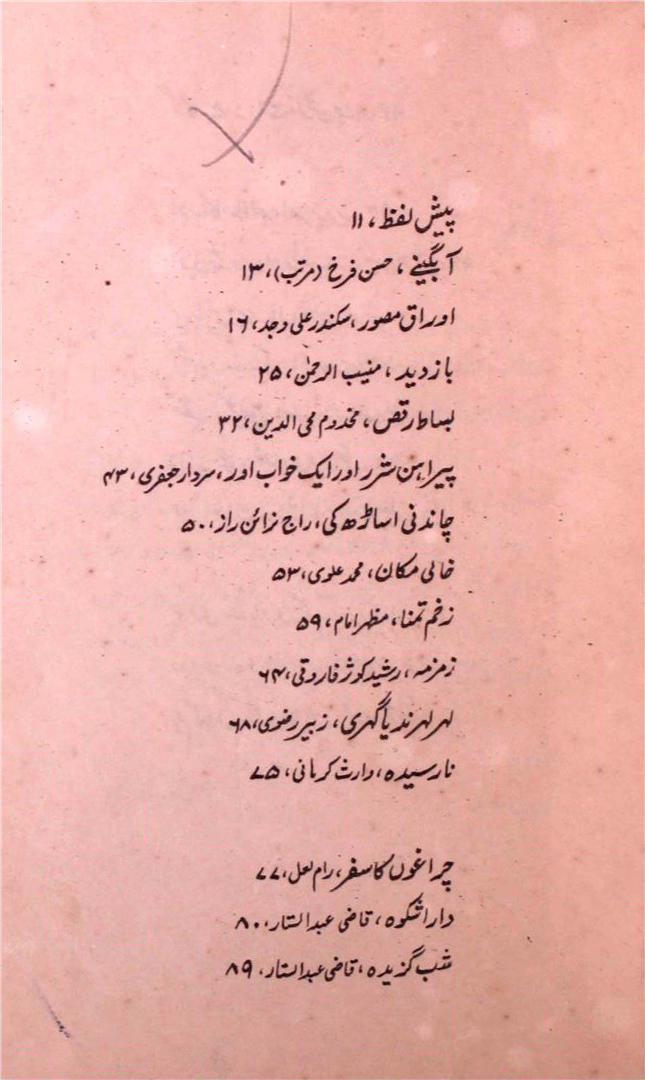 پیش لفظ، ۱۱
آبگینے، حسن فرخ (مرتب)، ۱۳
اوراق مصور، سکندر علی وجد، ۱۶
بازدید، منیب الرحمٰن، ۲۵
بساط رقص، مخدوم محی الدین، ۳۲
پیراہن شرر اور ایک خواب اور، سردار جعفری، ۴۳
چاندنی اساڑھ کی، راج نرائن راز، ۵۰
خالی مکان، محمد علوی، ۵۳
زخم تمنا، مظہر امام، ۵۹
زمزمہ، رشید کوثر فاروقی، ۶۴
لہر لہر ندیا گہری، زبیر رضوی، ۶۸
نارسیدہ، وارث کرمانی، ۷۵
چراغوں کا سفر، رام لعل، ۷۷
دارا شکوہ، قاضی عبدالستار، ۸۰
شب گزیدہ، قاضی عبدالستار، ۸۹